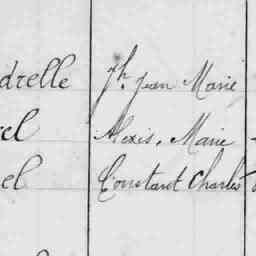 drelle Jh. Jean Marie
el Alexis, Marie
el Constant Charles